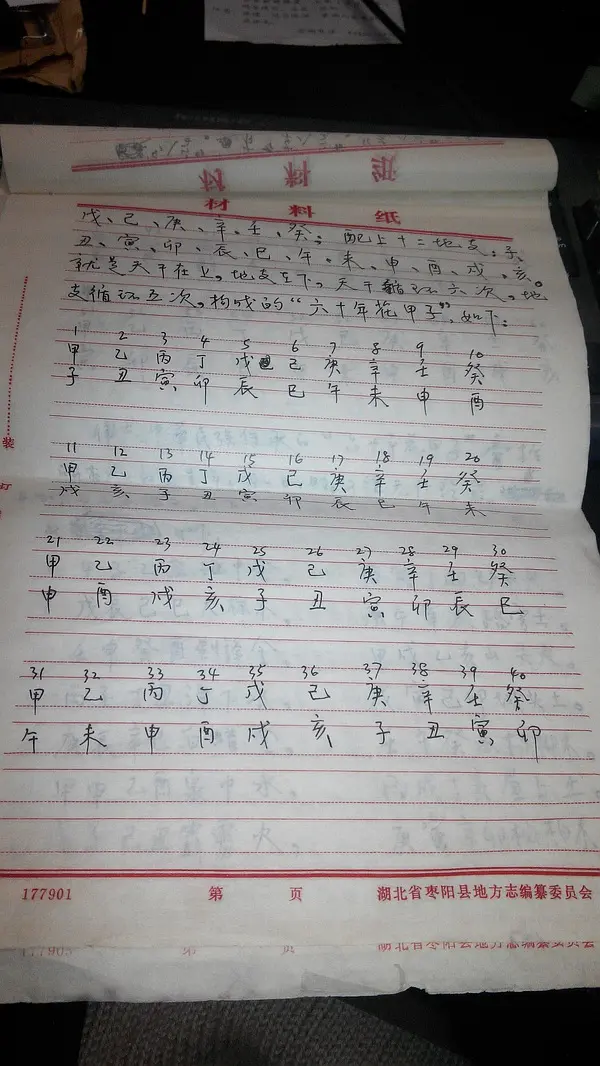 材 料 纸
材 料 纸
戊、己、庚、辛、壬、癸；配上十二地支：子、
丑、寅、卯、辰、巳、午、未、申、酉、戌、亥。
就是天干在上。地支在下。天干循环六次。地
支循环五次。构成的“六十年花甲子”，如下：
1 2 3 4 5 6 7 8 9 10
甲 乙 丙 丁 戊 己 庚 辛 壬 癸
子 丑 寅 卯 辰 巳 午 未 申 酉
11 12 13 14 15 16 17 18 19 20
甲 乙 丙 丁 戊 己 庚 辛 壬 癸
戌 亥 子 丑 寅 卯 辰 巳 午 未
21 22 23 24 25 26 27 28 29 30
甲 乙 丙 丁 戊 己 庚 辛 壬 癸
申 酉 戌 亥 子 丑 寅 卯 辰 巳
31 32 33 34 35 36 37 38 39 40
甲 乙 丙 丁 戊 己 庚 辛 壬 癸
午 未 申 酉 戌 亥 子 丑 寅 卯
装
订
177901 第 页 湖北省枣阳县地方志编纂委员会
177903 第 页 湖北省枣阳县地方志编纂委员会